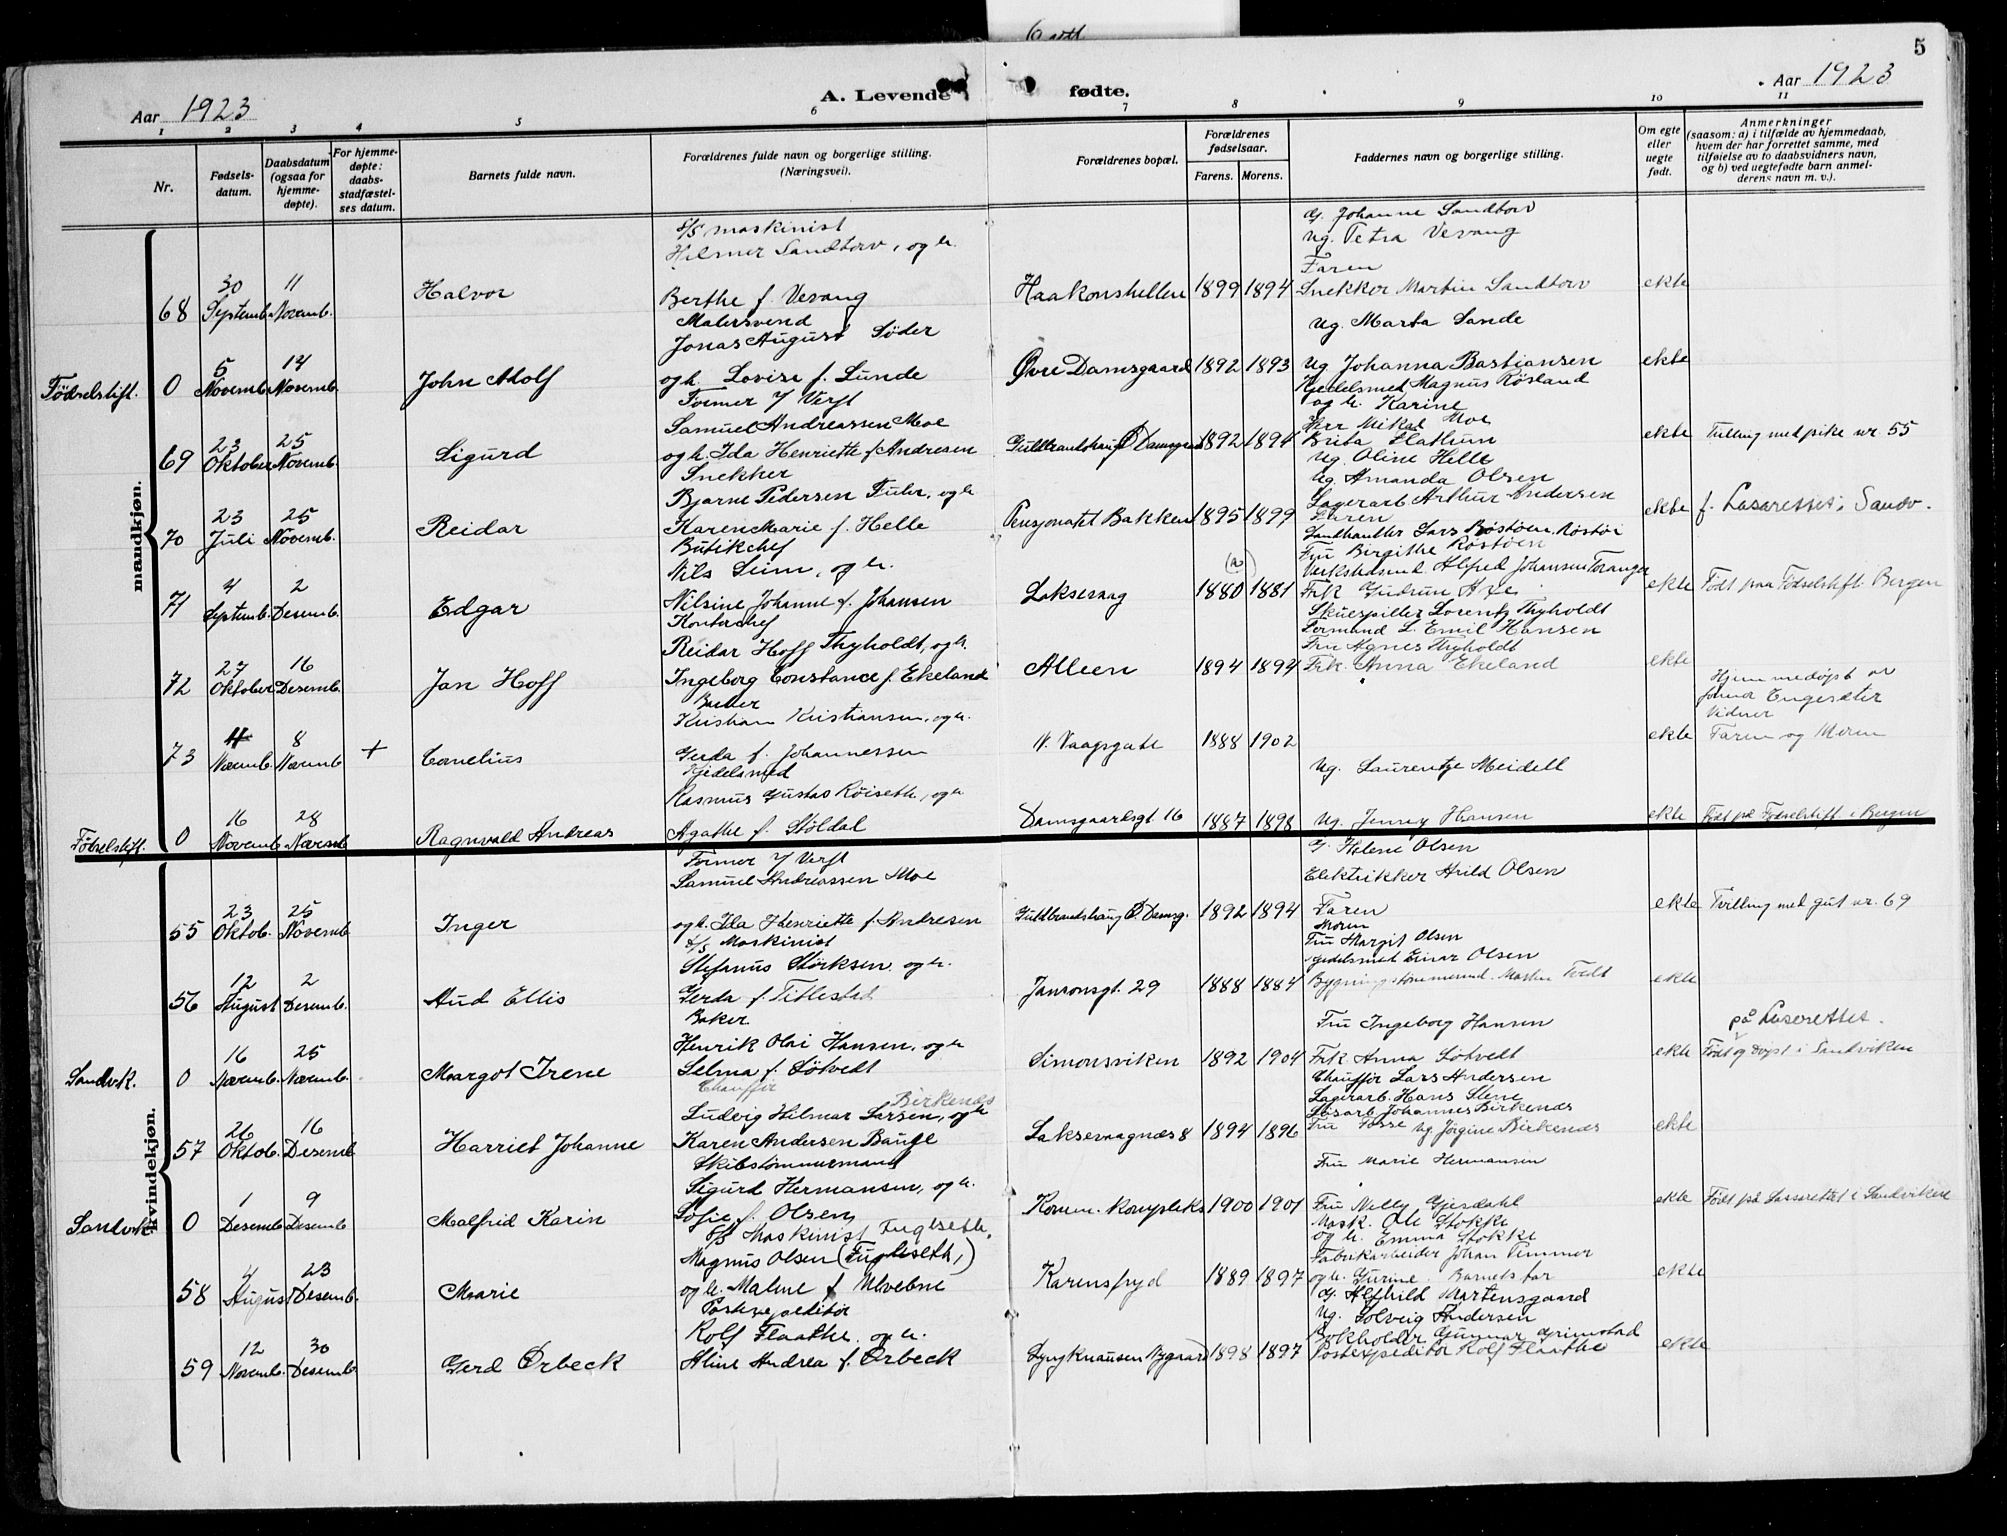 5
Aar 1923
A. Levende fødte.
Aar 1923
1 2 3 4 5 6 7 8 9 10 11
Nr.
Fødsels-
datum.
Daabsdatum
(ogsaa for
hjemme-
døpte).
For hjemme-
døpte:
daabs-
stadfæstel-
ses datum.
Barnets fulde navn.
Forældrenes fulde navn og borgerlige stilling.
(Næringsvei).
Forældrenes bopæl.
Forældrenes
fødselsaar.
Farens. Morens.
Faddernes navn og borgerlige stilling.
Om egte
eller
uegte
født.
Anmerkninger
(saasom: a) i tilfælde av hjemmedaab,
hvem der har forrettet samme, med
tilføielse av to daabsvidners navn,
og b) ved uegtefødte barn anmel-
derens navn m. v.).
mandkjøn.
S/S maskinist
Hilmer Sandtorv, og h.
G. Johanne Sandtorv
Ug. Petra Vevang
Faren
68 30 Septemb. 11 Novemb. Halvor Berthe f. Vevang Haakonshellen 1899 1894 Snekker Martin Sandtorv ekte
Malersvend
Jonas August Söder
Ug. Marta Sande
Födselstift. 0 5 Novemb. 14 Novemb. John Adolf og h. Lovise f. Lunde Øvre Damsgaard 1892 1893 Ug Johanna Bastiansen ekte
Kjedelsmed Magnus Røsland
og h. Karine
Former / Verft
Samuel Andreassen Moe
Herr Mikal Moe
69 23 Oktober 25 Novemb. Sigurd og h. Ida Henriette f. Andresen Guldbrandshaug Ø Damsgaard 1892 1894 Brita Flathun ekte Tvilling med pike nr. 55
Ug. Oline Helle
Ug. Amanda Olsen
Snekker
Bjarne Pedersen Fuhr, og h
Lagerarb Arthur Andersen
70 23 Juli 25 Novemb. Reidar Karen Marie f. Helle Pensjonatet Bakken 1895 1899 Faren ekte f. Lasarettet i Sandv.
Landhandler Lars Röstöen, Röstöi
Fru Birgithe Röstöen
Butikchef
Nils Seim, og h.
Verkstedsmd. Alfred Johansen Toranger
71 4 Septemb. 2 Desemb. Edgar Nilsine Johanne f. Johansen Laksevaag 1880 1881 Frk Gudrun ekte Födt paa Födselstift. Bergen
Skuespiller Lorentz Thyholdt
Formand L. Emil Hansen
Fru Agnes Thyholdt
Kontorchef
Reidar Hoff Thyholdt, og h.
72 27 Oktober 16 Desemb. Jan Hoff Ingeborg Constance f. Ekeland Alleen 1894 1894 Frk. Anna Ekeland ekte
Baker
Kristian Kristiansen, og h.
Hjemmedöpt av
Engesæter
Vidner
73 4 Novemb. 8 Novemb. + Cornelius Gerda f. Johannessen N. Vaagsgate 1888 1902 ekte Faren og Moren
Kjedelsmed
Rasmus Gustav Röiseth, og h
Ug. Laurentze Meidell
Födselstift. 0 16 Novemb. 28 Novemb Ragnvald Andreas Agathe f. Stöldal Damsgaardsgt 16 1887 1898 Ug. Jenny Hansen ekte Födt på Födselstift i Bergen
kvindekjøn.
Former / Verft
Samuel Andreassen Moe
G. Helene Olsen
Elektrikker Arild Olsen
55 23 Oktob. 25 Novemb Inger og h. Ida Henriette f. Andresen Guldbrandshaug Ø. Damsg. 1892 1894 Faren ekte Tvilling med gut nr. 69
Moren
Fru Margit Olsen
Kjedelsmed Einar Olsen
S/S Maskinist
Stefanus Störksen og h.
56 12 August 2 Desemb. Aud Ellis Gerda f. Titlestad Jansonsgt. 29 1888 1884 Bygningstömmermd. Martin Tvedt ekte
Baker
Henrik Olai Hansen, og h
Fru Ingeborg Hansen
på Lasarettet.
Sandvk. 0 16 Novemb. 25 Novemb. Margot Irene Selma f. Sötvedt Simonsviken 1892 1904 Frk Anna Sötvedt ekte Födt og döpt i Sandviken
Chauffør Lars Andersen
Lagerarb. Hans Stene
Lösarb. Johannes Birkenæs
Chauffør
Ludvig Hilmar Larsen, og h
Birkenæs
57 26 Oktob. 16 Desemb Harriet Johanne Karen Andersen Bauge Laksevaagnæs 8 1894 1896 Fru Fosse Ug Jörgine Birkenæs ekte
Skibstømmermand
Sigurd Hermansen, og h.
Fru Marie Hermansen
Sandvk. 0 1 Desemb 9 Desemb Malfrid Karin Sofie f. Olsen Komm. Kompleks 1900 1901 Fru Nelly Gjesdahl ekte Födt på Lassarettet i Sandviken
Mask. Ole Stokke
og h. Emma Stokke
Fabrikarbeider Johan Timmer
S/S Maskinist Fuglseth,
Magnus Olsen (Fugleseth,)
58 4 August 23 Desemb. Marie og h. Malene f. Ulvebne Karensfryd 1889 1897 og h. Gurine. Barnets far ekte
G. Alfhild Martensgaard
Ug. Solveig Andersen
Bokholder Gunnar Grimstad
Postexpeditör
Rolf Flaathe. og h.
59 12 Novemb. 30 Desemb. Gerd Ørbeck Aline Andrea f. Ørbeck Lyngknausen Nygaard 1898 1897 Postexpeditör Rolf Flaathe ekte